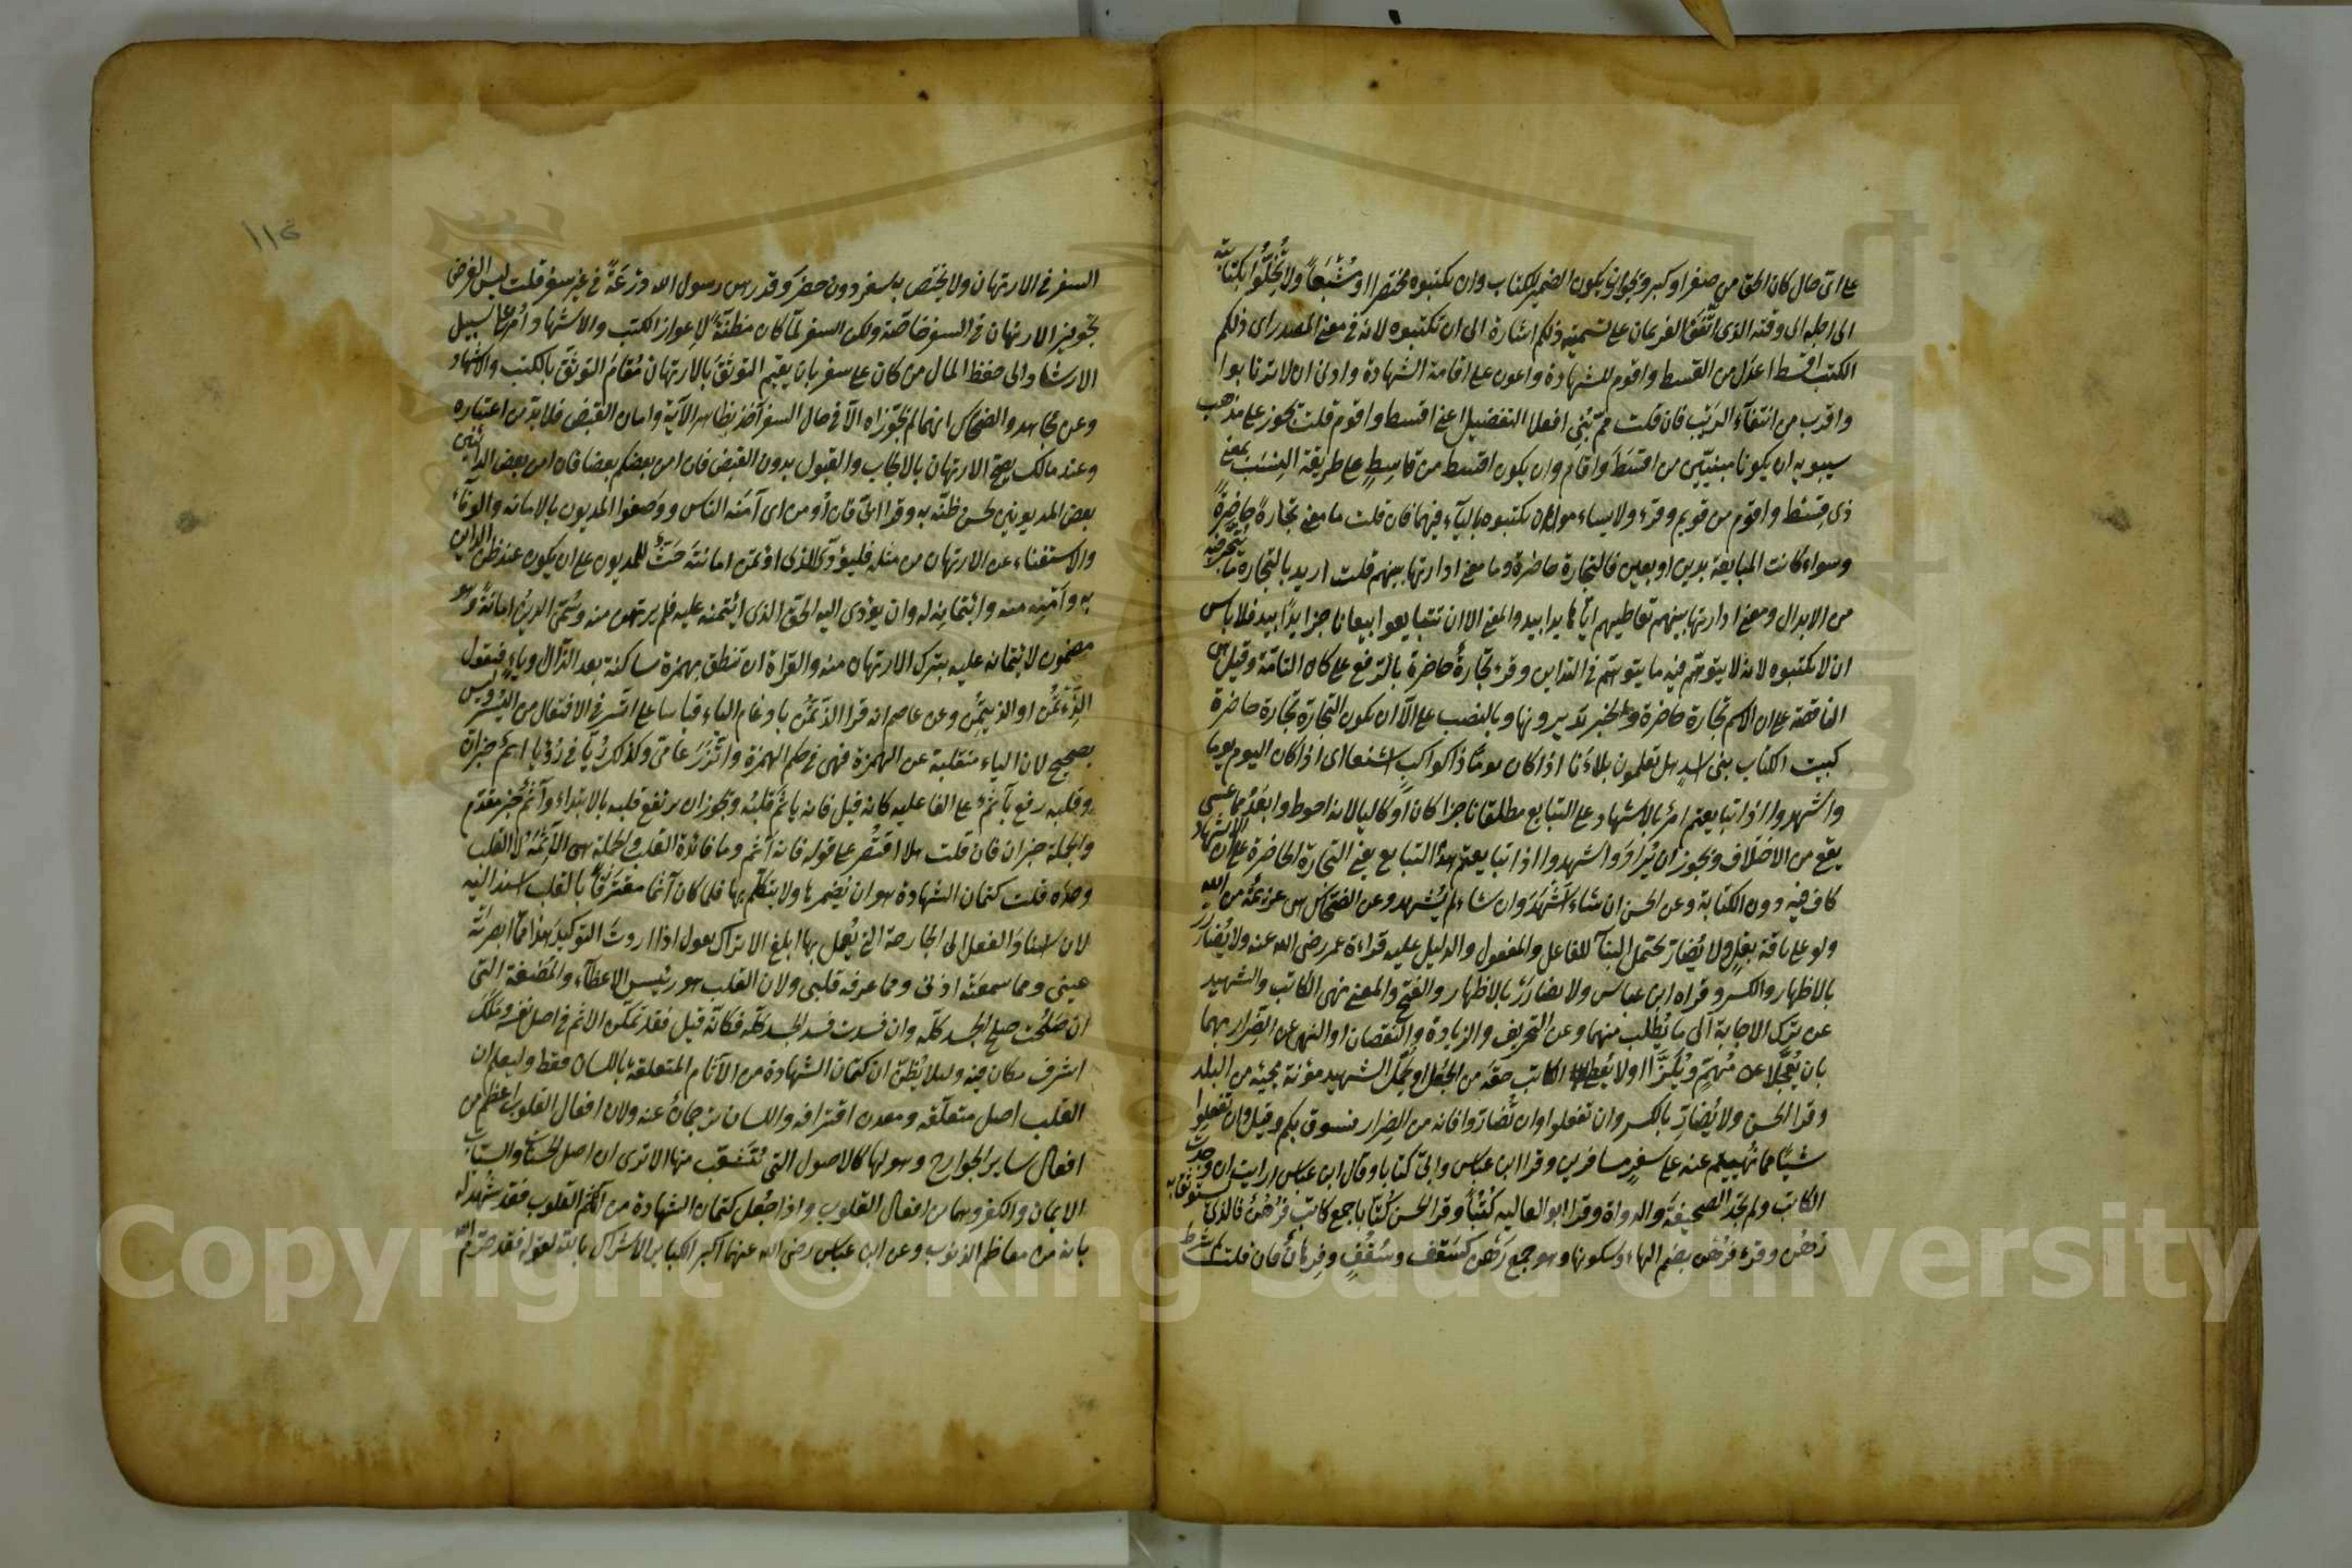 على اى حال كان الحق من صغر او كبر ويجوز ان يكون الضمير للكتاب وان يكتبوه مختصرا او مشبعا ولا يخلوا بكتابته
الى اجله الى وقته الذى اتفق الغريمان على تسميته ذلكم اشارة الى ان تكتبوه لانه فى معنى المصدر اى ذلكم
الكتب اقسط اعدل من القسط واقوم للشهادة واعون على اقامة الشهادة وادنى ان لا ترتابوا
واقرب من انتفاء الريب فان قلت مم بنى افعلا التفضيل اعنى اقسط واقوم قلت يجوز على مذهب
سيبويه ان يكونا مبنيين من اقسط واقام وان يكون اقسط من قاسط على طريقة النسب بمعنى
ذى قسط واقوم من قويم وقرء ولا يساموا ان يكتبوه بالياء فيهما فان قلت ما معنى تجارة حاضرة
وسواء كانت المبايعة بدين او بعين فالتجارة حاضرة وما معنى ادارتها بينهم قلت اريد بالتجارة ما يتجر فيه
من الابدال ومعنى ادارتها بينهم تعاطيهم اياها يدا بيد والمعنى الا ان تتبايعوا بيعا ناجزا يدا بيد فلا باس
ان لا تكتبوه لانه لا يتوهم فيه ما يتوهم فى التداين وقرء تجارة حاضرة بالرفع على كان التامة وقيل هى
الناقصة على ان الاسم تجارة حاضرة والخبر تديرونها وبالنصب على الا ان تكون التجارة تجارة حاضرة
كبيت الكتاب بنى اسد هل تعلمون بلاءنا اذا كان يوما ذا كواكب اشنعا اى اذا كان اليوم يوما
واشهدوا اذا تبايعتم امر بالاشهاد على التبايع مطلقا ناجزا كان او كاليا لانه احوط وابعد مما عسى
يقع من الاختلاف ويجوز ان يراد واشهدوا اذا تبايعتم هذا التبايع يعنى التجارة الحاضرة على ان الاشهاد
كاف فيه دون الكتابة وعن الحسن ان شاء اشهد وان شاء لم يشهد وعن الضحاك هى عزيمة من الله
ولو على باقة بقل ولا يضار يحتمل البناء للفاعل والمفعول والدليل عليه قراءة عمر رضى الله عنه ولا يضارر
بالاظهار والكسر وقراه ابن عباس ولا يضارر بالاظهار والفتح والمعنى نهى الكاتب والشهيد
عن ترك الاجابة الى ما يطلب منهما وعن التحريف والزيادة والنقصان او النهى عن الضرار بهما
بان يعجلا عن مهم ويلزا او لا يعطى الكاتب حقه من الجعل او يحمل الشهيد مؤنة مجيئه من البلد
وقرا الحسن ولا يضار بالكسر وان تفعلوا وان تضاروا فانه من الضرار فسوق بكم وقيل وان تفعلوا
شيئا مما نهيتم عنه على سفر مسافرين وقرا ابن عباس وابى كتابا وقال ابن عباس ارايت ان وجدت
الكاتب ولم تجد الصحيفة والدواة وقرا ابو العاليه كتبا وقرا الحسن كتابا جمع كاتب فرهن فالذى يستوثق به
رهن وقرء فرهن بضم الهاء وسكونها وهو جمع رهن كسقف وسقف وفرهان فان قلت لم شرط
١١٤
السفر فى الارتهان ولا يختص به سفر دون حضر وقد رهن رسول الله درعه فى غير سفر قلت ليس الغرض
تجويز الارتهان فى السفر خاصة ولكن السفر لما كان مظنة لاعواز الكتب والاشهاد امر على سبيل
الارشاد الى حفظ المال من كان على سفر بان يقيم التوثق بالارتهان مقام التوثق بالكتب والاشهاد
وعن مجاهد والضحاك انهما لم يجوزاه الا فى حال السفر آخذا بظاهر الآية واما القبض فلا بد من اعتباره
وعند مالك يصح الارتهان بالايجاب والقبول بدون القبض فان امن بعضكم بعضا فان امن بعض الداينين
بعض المديونين لحسن ظنه به وقرا ابى فان اومن اى آمنه الناس ووصفوا المديون بالامانه والوفاء
والاستغناء عن الارتهان من مثله فليؤد الذى اؤتمن امانته حث للمديون على ان يكون عند ظن الداين
به وآمنه منه وائتمانه له وان يؤدى اليه الحق الذى ائتمنه عليه فلم يرتهن منه وسمى الدين امانة وهو
مضمون لائتمانه عليه بترك الارتهان منه والقراة ان تنطق بهمزة ساكنة بعد الذال وياء فنقول
الذئتمن او الذيتمن وعن عاصم انه قرا الذتمن بادغام الياء قياسا على اتسر فى الافتعال من اليسر وليس
بصحيح لان الياء منقلبة عن الهمزة فهى فى حكم الهمزة واتزر عامى وكذلك ريا فى رؤيا اثم خبر ان
وقلبه رفع باثم على الفاعليه كانه قيل فانه ياثم قلبه ويجوز ان يرتفع قلبه بالابتداء وآثم خبر مقدم
والجملة خبر ان فان قلت هلا اقتصر على قوله فانه آثم وما فائدة القلب والجملة هى الآثمة لا القلب
وحده قلت كتمان الشهادة هو ان يضمرها ولا يتكلم بها فلما كان آثما مقترفا بالقلب اسند اليه
لان اسناد الفعل الى الجارحة التى يعمل بها ابلغ الا تراك تقول اذا اردت التوكيد هذا مما ابصرته
عينى ومما سمعته اذنى ومما عرفه قلبى ولان القلب هو رئيس الاعضاء والمضغة التى
ان صلحت صلح الجسد كله وان فسدت فسد الجسد كله فكانه قيل فقد تمكن الاثم فى اصل نفسه وملك
اشرف مكان فيه وليلا يظن ان كتمان الشهادة من الآثام المتعلقة باللسان فقط وليعلم ان
القلب اصل متعلقه ومعدن اقترافه واللسان ترجمان عنه ولان افعال القلوب اعظم من
افعال ساير الجوارح وهى لها كالاصول التى تتشعب منها الا ترى ان اصل الحسنات والسيئات
الايمان والكفر وهما من افعال القلوب واذا جعل كتمان الشهادة من آثام القلوب فقد شهد له
بانه من معاظم الذنوب وعن ابن عباس رضى الله عنهما اكبر الكباير الاشراك بالله لقوله فقد حرم الله
Copyright © King Saud University